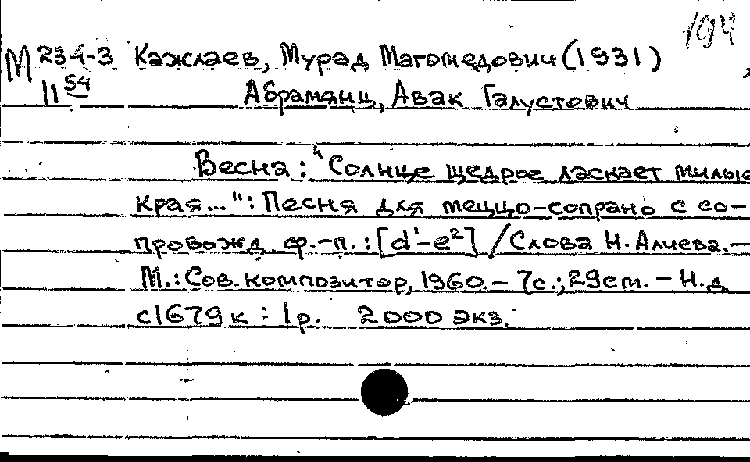 194
М 234-3 Кажлаев, Мурад Магомедович (1931)
11 54 Абрамянц, Авак Галустович
Весна: "Солнце щедрое ласкает милые
края...": Песня для меццо-сопрано с со-
провожд. ф.-п.: [d¹-e²] / Слова Н. Алиева. —
М.: Сов. композитор, 1960. — 7с.; 29cm. — Н.д.
с1679к : 1р. 2000 экз.